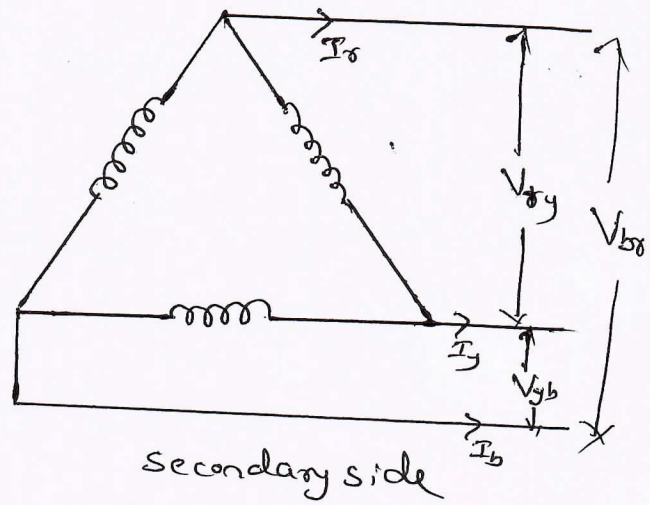 Ir
Vry
Vbr
Iy
Vyb
Ib
Secondary side